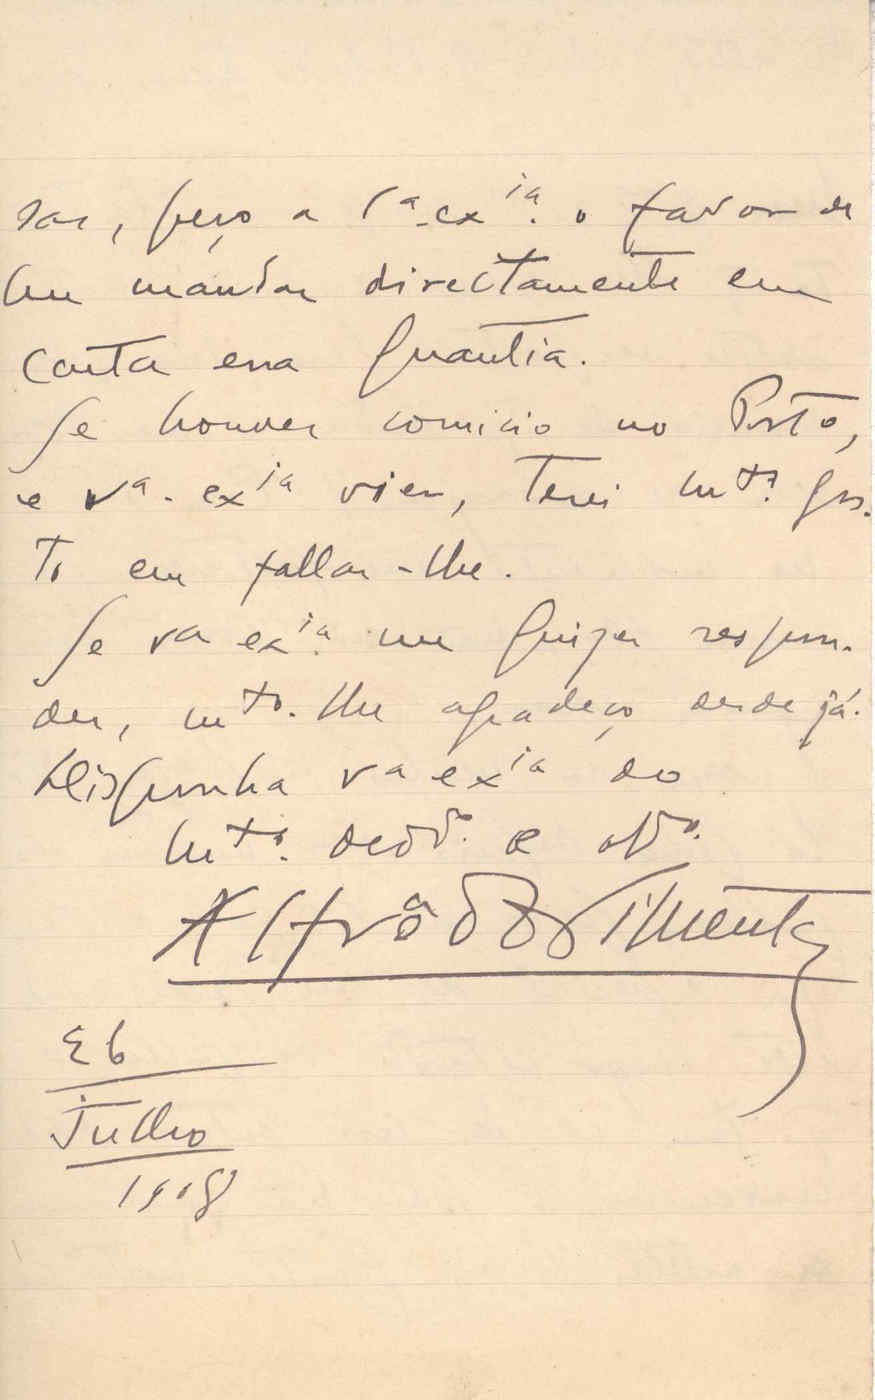 sar, peço a V.ª ex.ia o favor de
me mandar directamente em
carta essa quantia.
Se houver comicio no Porto,
e v.ª ex.ia vier, terei m.to gos-
to em fallar-lhe.
Se v.ª ex.ia me quizer respon-
der, m.to lhe agradeço desde já.
Disponha v.ª ex.ia do
m.to ded.o e obd.o
Alfredo Pimenta
26
Julho
1908